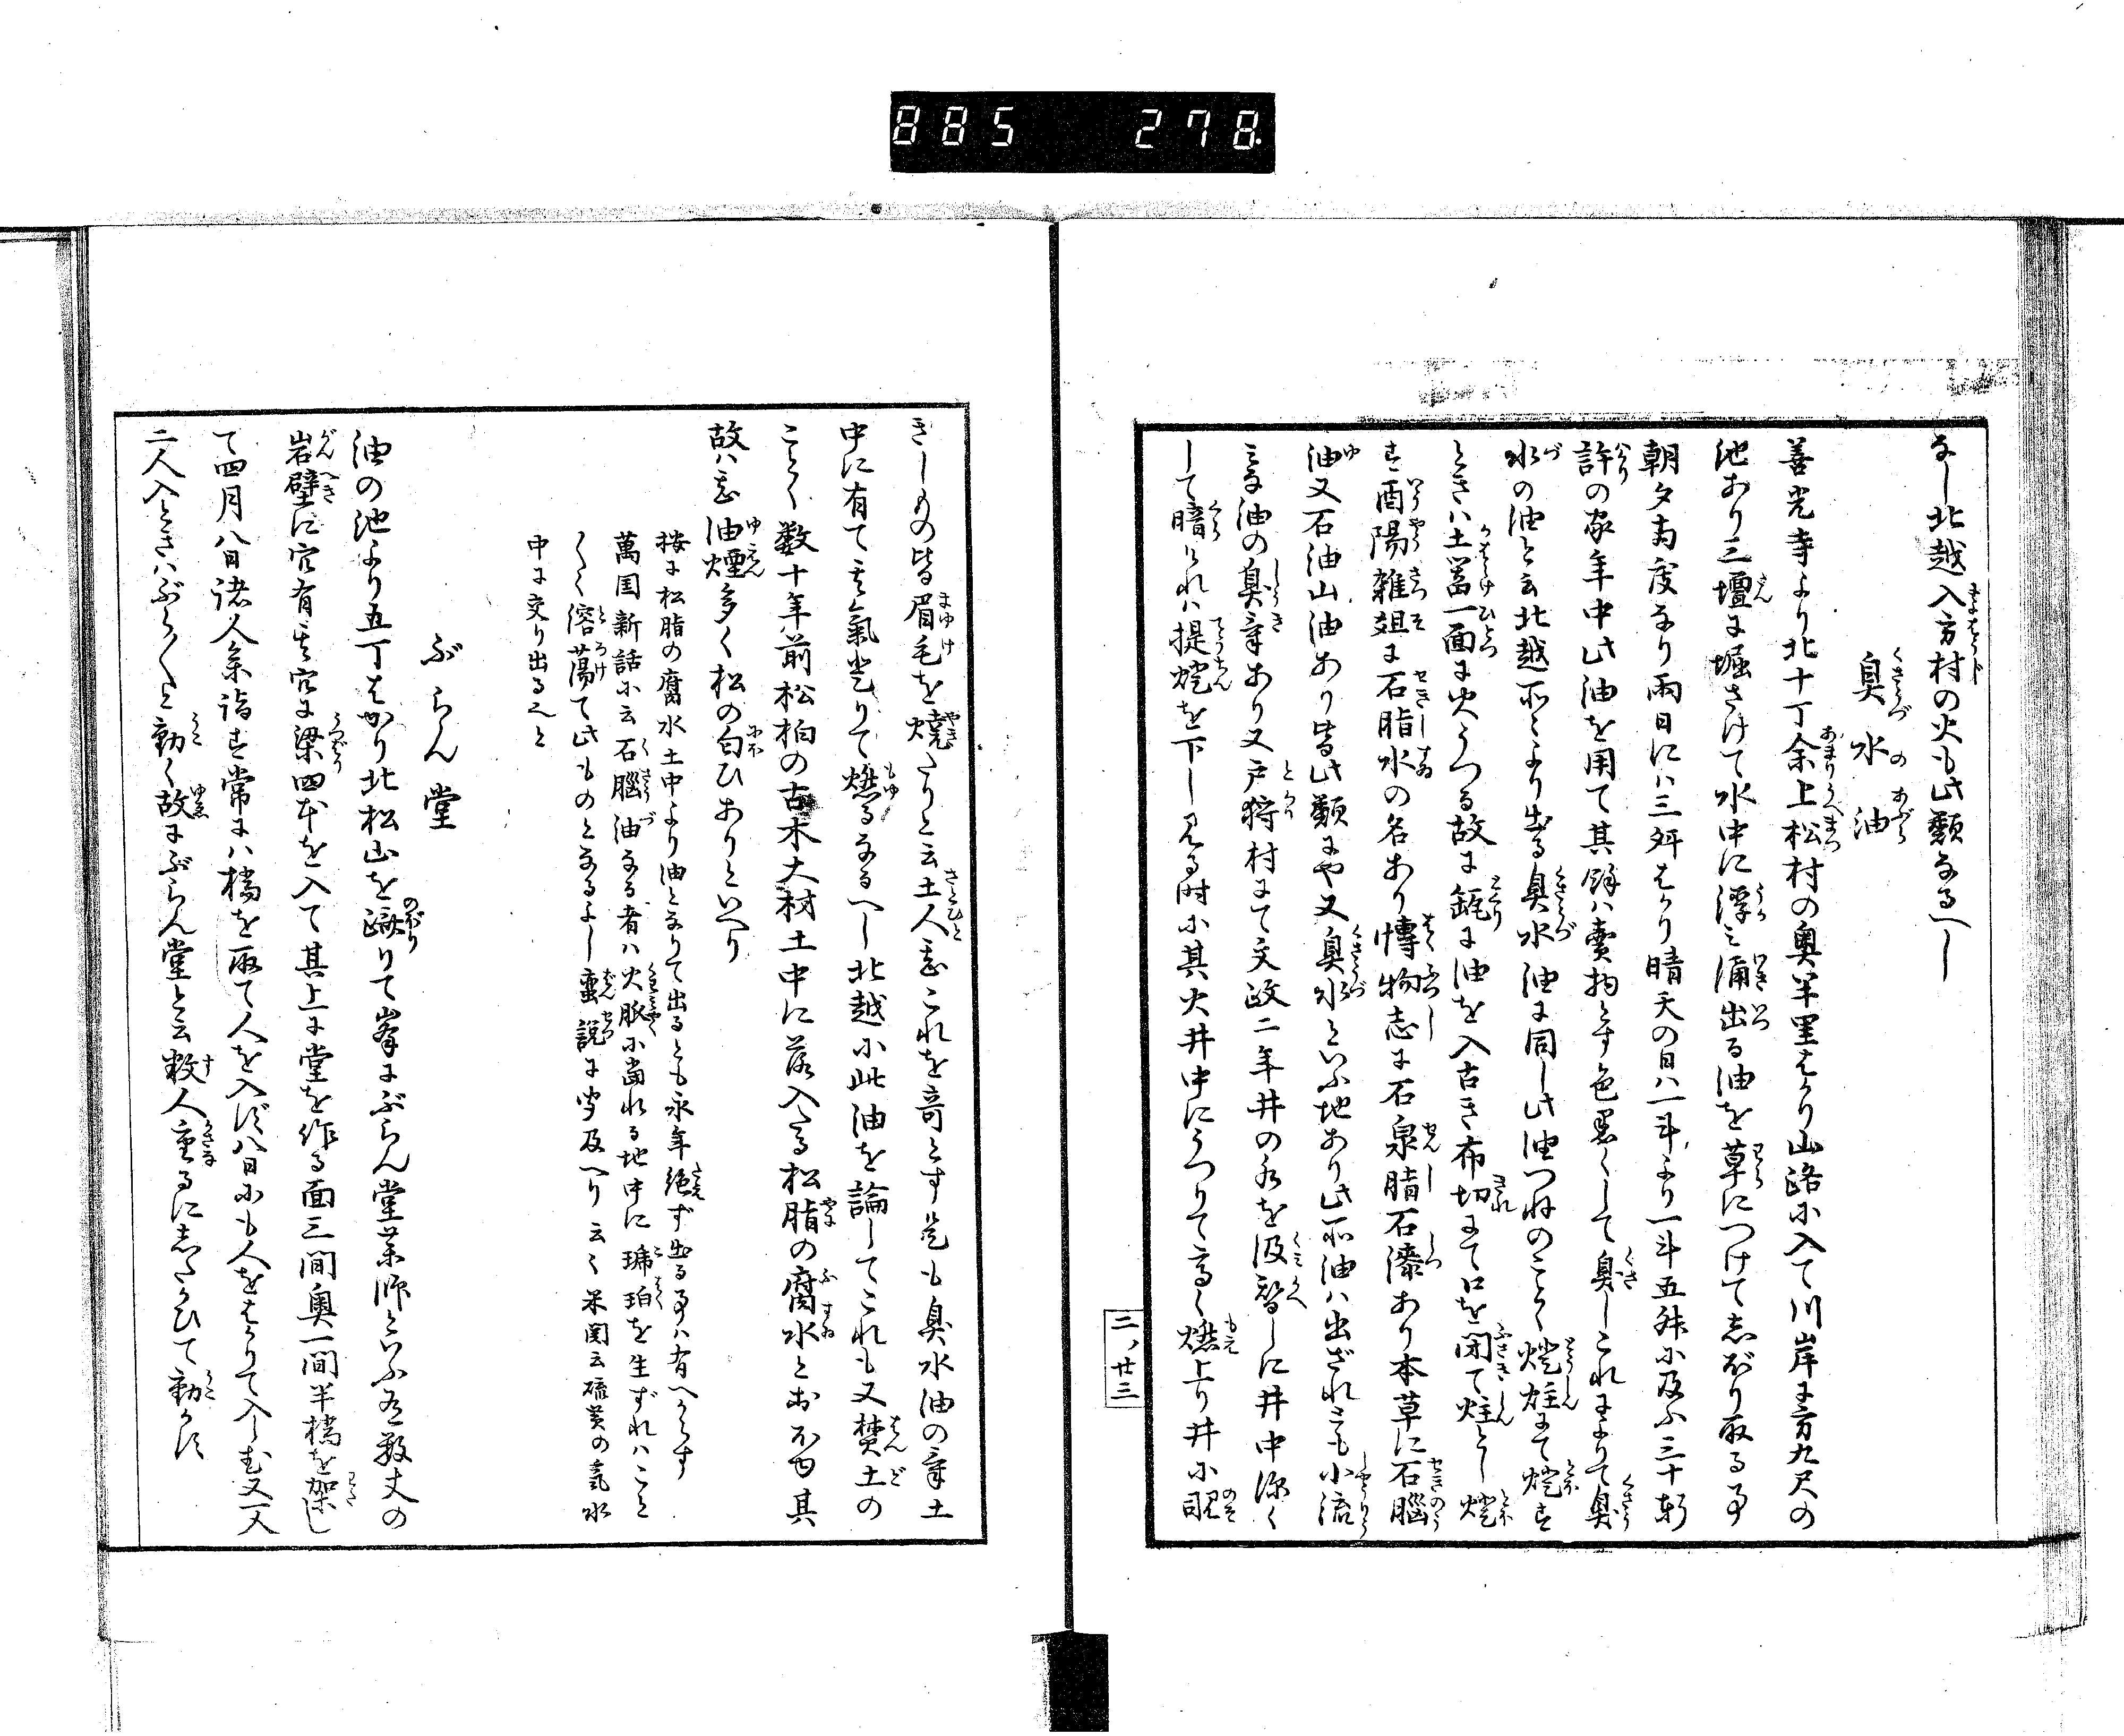 885 278
なし北越入方村の火も此類なるへし
臭水油
善光寺より北十丁余上松村の奥半里はかり山路に入て川岸に方九尺の
池あり三壇に堀さけて水中に浮み涌出る油を草につけてしぼり取る事
朝夕両度なり雨日には三舛はかり晴天の日は一斗より一斗五舛に及ふ三十軒
許の家年中此油を用て其餘は賣物とす色黒くして臭しこれによりて臭
水の油と云北越所々より出る臭水油に同し此油つねのことく燈炷にて燈す
ときは土噐一面に火うつる故に瓶に油を入古き布切にて口を閉て炷とし燈
す酉陽雑俎に石脂水の名あり博物志に石泉脂石漆あり本草に石腦
油又石油山油あり皆此類にや又臭水といふ地あり此所油は出ざれとも小流
みな油の臭氣あり又戸狩村にて文政二年井の水を汲替しに井中深く
して暗けれは提燈を下し見る時に其火井中にうつりて高く燃上り井に覗
三ノ廿三
きしもの皆眉毛を燒たりと云土人甚これを奇とす是も臭水油の氣土
中に有て其氣登りて燃るなるへし北越に此油を論してこれも又焚土の
ことく数十年前松柏の古木大材土中に落入たる松脂の腐水とおもほゆ其
故は甚油煙多く松の匂ひありといへり
按に松脂の腐水土中より油となりて出るとも永年絶ず出る事は有へからす
萬国新話に云石腦油なる者は火脈に當れる地中に琥珀を生ずれはこと
〳〵く溶蕩て此ものとなるよし蛮説に少及へり云々米関云硫黄の氣水
中に交り出る也と
ぶらん堂
油の池より五丁はかり北松山を躋りて峯にぶらん堂薬師といふ有数丈の
岩壁に穴有其穴に梁四本を入て其上に堂を作る面三間奥一間半橋を架し
て四月八日諸人参詣す常には橋を取て人を入れず八日にも人をはかりて入しむ又一人
二人入ときはぶら〳〵と動く故にぶらん堂と云数人重るにしたかひて動かす